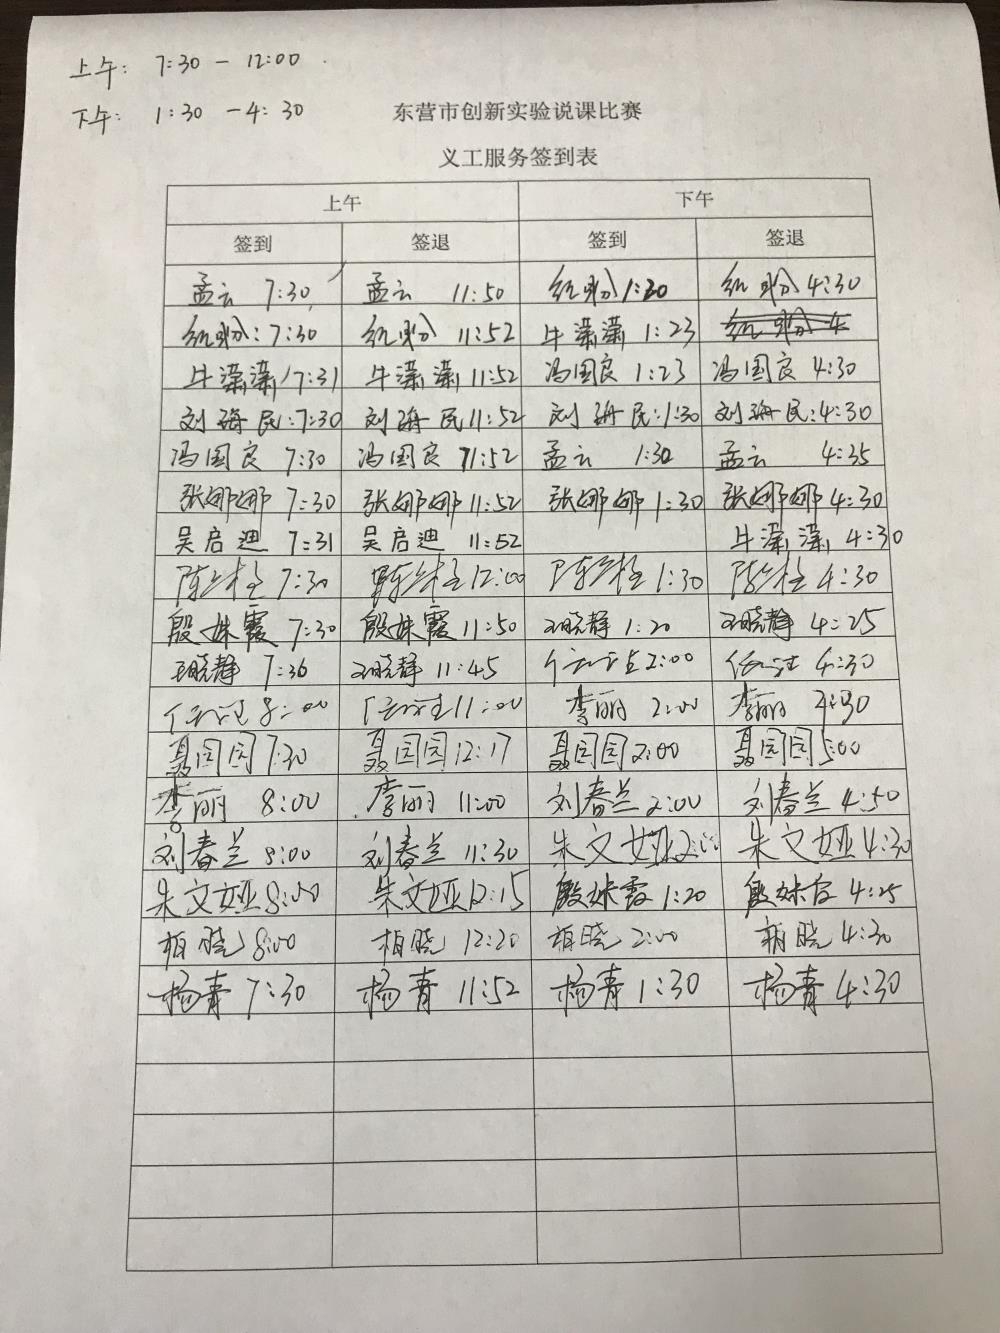 上午: 7:30 - 12:00
下午: 1:30 - 4:30
东营市创新实验说课比赛
义工服务签到表
上午 下午
签到 签退 签到 签退
孟云 7:30 孟云 11:50 1:30 4:30
7:30 11:52 牛潇潇 1:23 4
牛潇潇 7:31 牛潇潇 11:52 冯国良 1:23 冯国良 4:30
刘海民:7:30 刘海民 11:52 刘海民:1:30 刘海民:4:30
冯国良 7:30 冯国良 11:52 孟云 1:30 孟云 4:35
张娜娜 7:30 张娜娜 11:52 张娜娜 1:30 张娜娜 4:30
吴启迪 7:31 吴启迪 11:52 牛潇潇 4:30
7:30 12:00 1:30 4:30
殷姝霞 7:30 殷姝霞 11:50 王晓静 1:20 王晓静 4:25
王晓静 7:36 王晓静 11:45 2:00 4:30
8:00 11:00 李丽 2:00 李丽 4:30
聂园园 7:30 聂园园 12:17 聂园园 2:00 聂园园 5:00
李丽 8:00 李丽 11:00 刘春兰 2:00 刘春兰 4:50
刘春兰 8:00 刘春兰 11:30 朱文娅 2:00 朱文娅 4:30
朱文娅 8:00 朱文娅 12:15 殷姝霞 1:20 殷姝霞 4:25
柏晓 8:00 柏晓 12:20 柏晓 2:00 柏晓 4:30
杨青 7:30 杨青 11:52 杨青 1:30 杨青 4:30